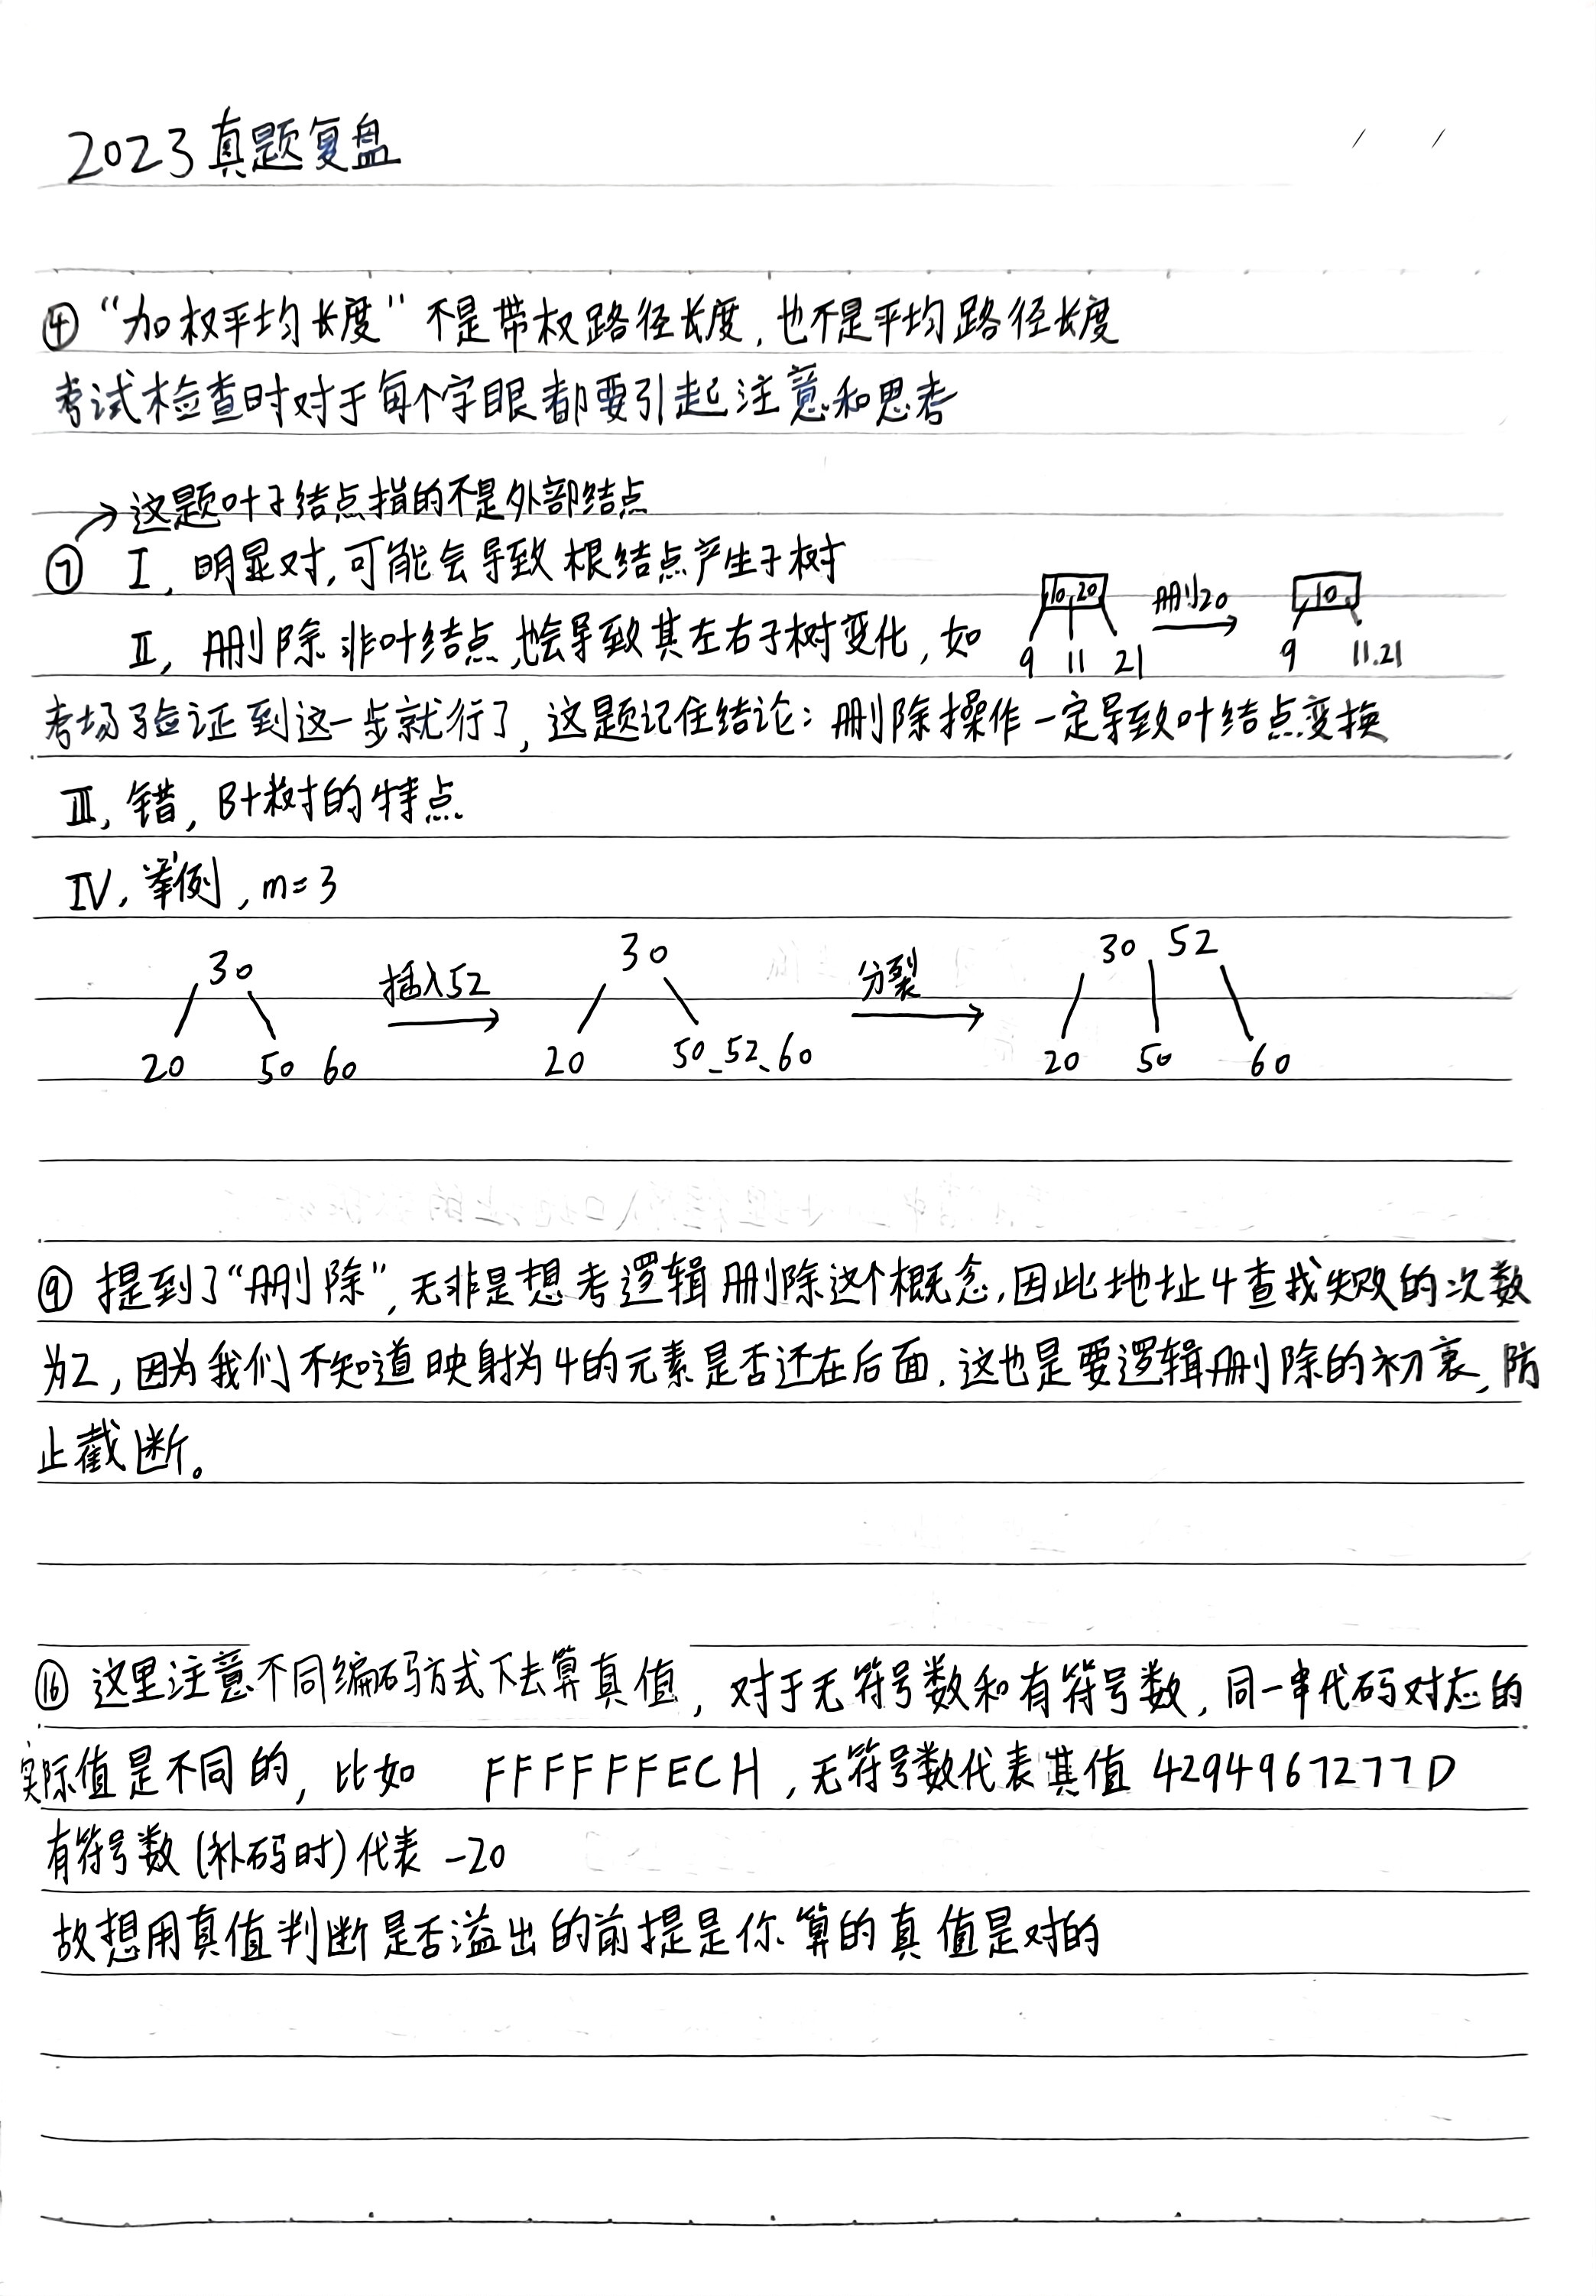 2023真题复盘
/ /
④ “加权平均长度” 不是带权路径长度, 也不是平均路径长度
考试检查时对于每个字眼都要引起注意和思考
→这题叶子结点指的不是外部结点
⑦ Ⅰ, 明显对, 可能会导致根结点产生子树
10, 20 删20 10
Ⅱ, 删除非叶结点,也会导致其左右子树变化, 如
9 11 21 9 11.21
考场验证到这一步就行了, 这题记住结论: 删除操作一定导致叶结点变换
Ⅲ, 错, B+树的特点
Ⅳ, 举例, m=3
30 插入52 30 分裂 30 52
20 50 60 20 50、52、60 20 50 60
⑨ 提到了“删除”, 无非是想考逻辑删除这个概念, 因此地址4查找失败的次数
为2, 因为我们不知道映射为4的元素是否还在后面. 这也是要逻辑删除的初衷, 防
止截断。
⑯ 这里注意不同编码方式下去算真值, 对于无符号数和有符号数, 同一串代码对应的
实际值是不同的, 比如 FFFFFFECH, 无符号数代表其值 4294967277D
有符号数 (补码时) 代表 -20
故想用真值判断是否溢出的前提是你算的真值是对的